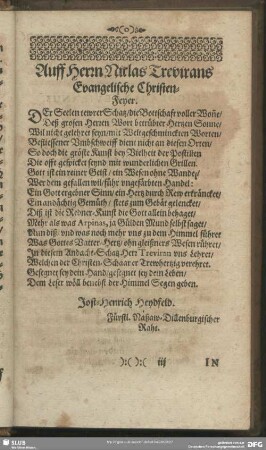 Auff Herrn Niclas Trevirans
Evangelische Christen-
Feyer.
DEr Seelen tewrer Schatz/die Bottschafft voller Woñe/
Deß grosen Herren Wort betrübter Hertzen Sonne/
Wil nicht gelehret seyn/mit Weltgeschmückten Worten/
Beflissener Umbschweiff dient nicht an diesen Orten/
So doch die gröste Kunst der Vielheit der Postillen
Die offt gespicket seynd mit wunderlichen Grillen.
Gott ist ein reiner Geist / ein Wesen ohne Wandel/
Wer dem gefallen wil/führ ungefärbten Handel:
Ein Gott ergebner Sinn/ein Hertz durch Rew erkräncket/
Ein andächtig Gemüth / stets zum Gebät gelencket/
Diß ist die Redner-Kunst die Gott allein behaget/
Mehr als was Arpinas, ja Gülden Mund selbst saget/
Nun diß/ und was noch mehr uns zu dem Himmel führet
Was Gottes Vatter-Hertz/ohn gleißners Wesen rühret/
In diesem Andacht-Schatz Herr Treviran uns Lehret/
Welchen der Christen-Schaar er Trewhertzig verehret.
Gesegnet sey dein Hand/gesegnet sey dein Leben/
Dem Leser wöll benebst der Himmel Segen geben.
Jost-Henrich Heydfeld.
Fürstl. Naßaw-Dillenburgischer
Raht.
):( ):( iij
IN
SLUB
DFG